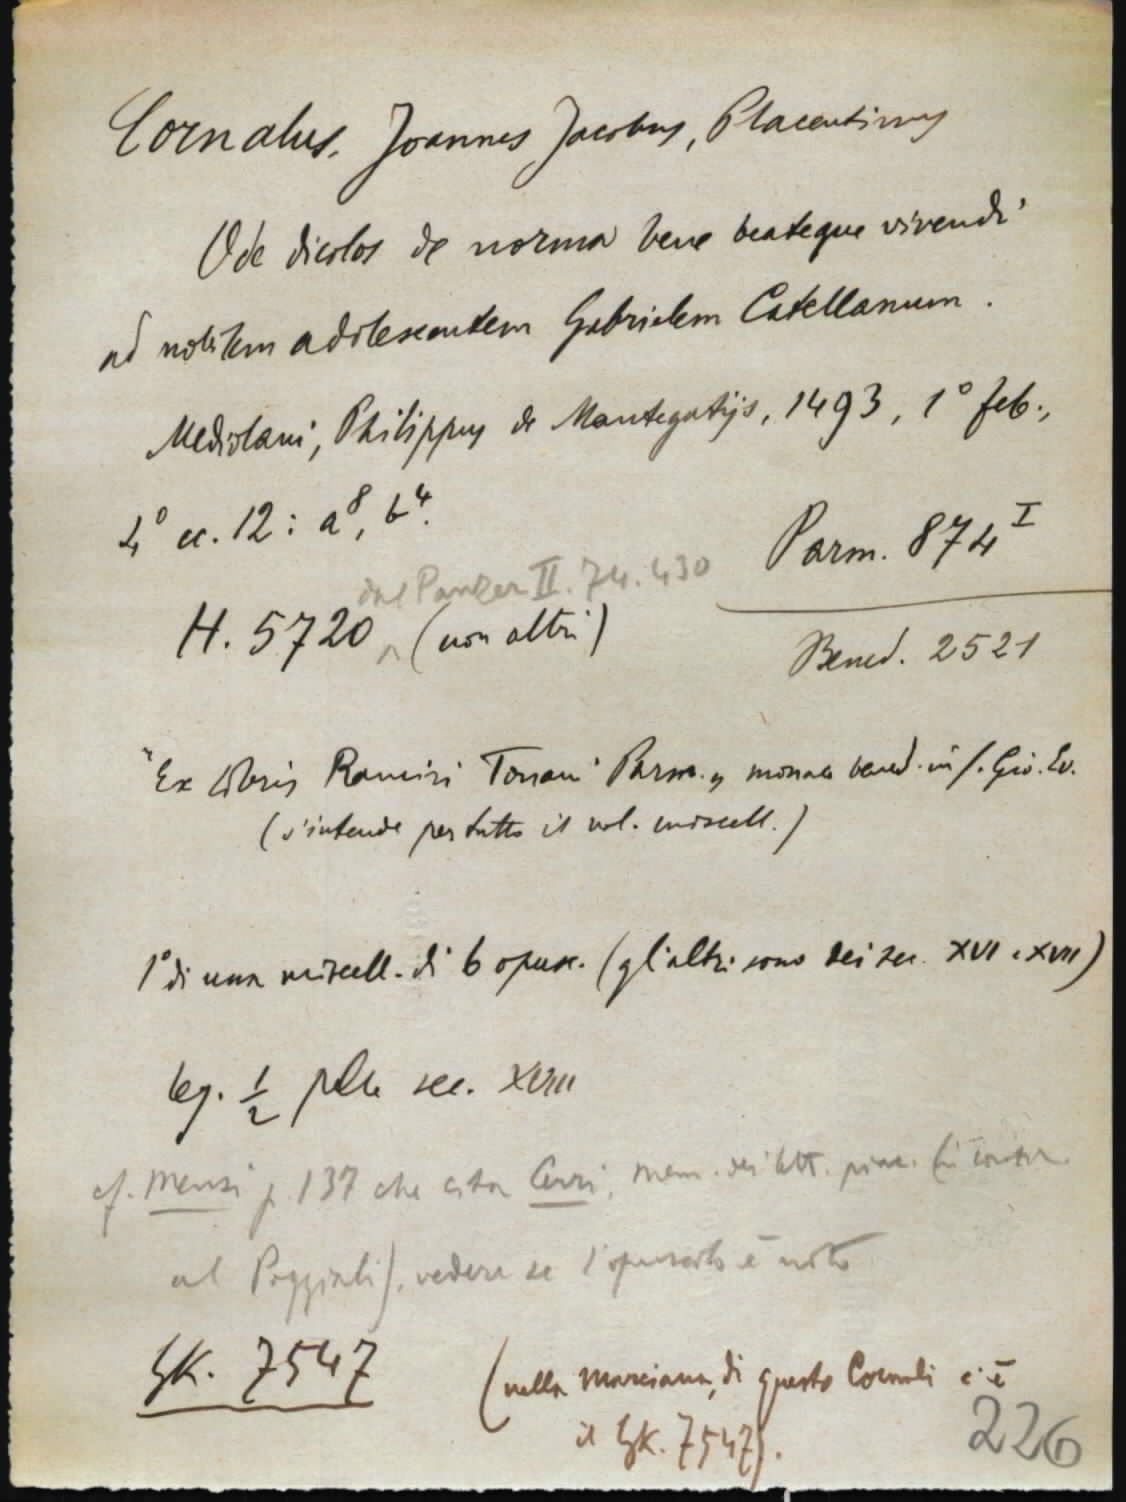 Cornalus, Joannes Jacobus, Placentinus
Ode dicolos de norma bene beateque vivendi
ad nobilem adolescentem Gabrielem Catellanum.
Mediolani, Philippus de Mantegatijs, 1493, 1° feb.,
4° cc. 12: a⁸, b⁴.
Parm. 874 I
dal Panzer II. 74. 430
H. 5720 ^ (non altri)
Bened. 2521
"Ex libris Ramiri Tonani Parm." monaco bened. in S. Gio. Ev.
(s'intende per tutto il vol. miscell.)
1° di una miscell. di 6 opusc. (gli altri sono dei sec. XVI e XVII)
leg. 1/2 pelle sec. XVIII
cf. Mensi p. 137 che cita Cerri, mem. dei lett. piac. (in
al Poggiali). vedere se l'opuscolo è noto
GK. 7547
(nella Marciana, di questo Cornali c'è
il GK. 7547).
226